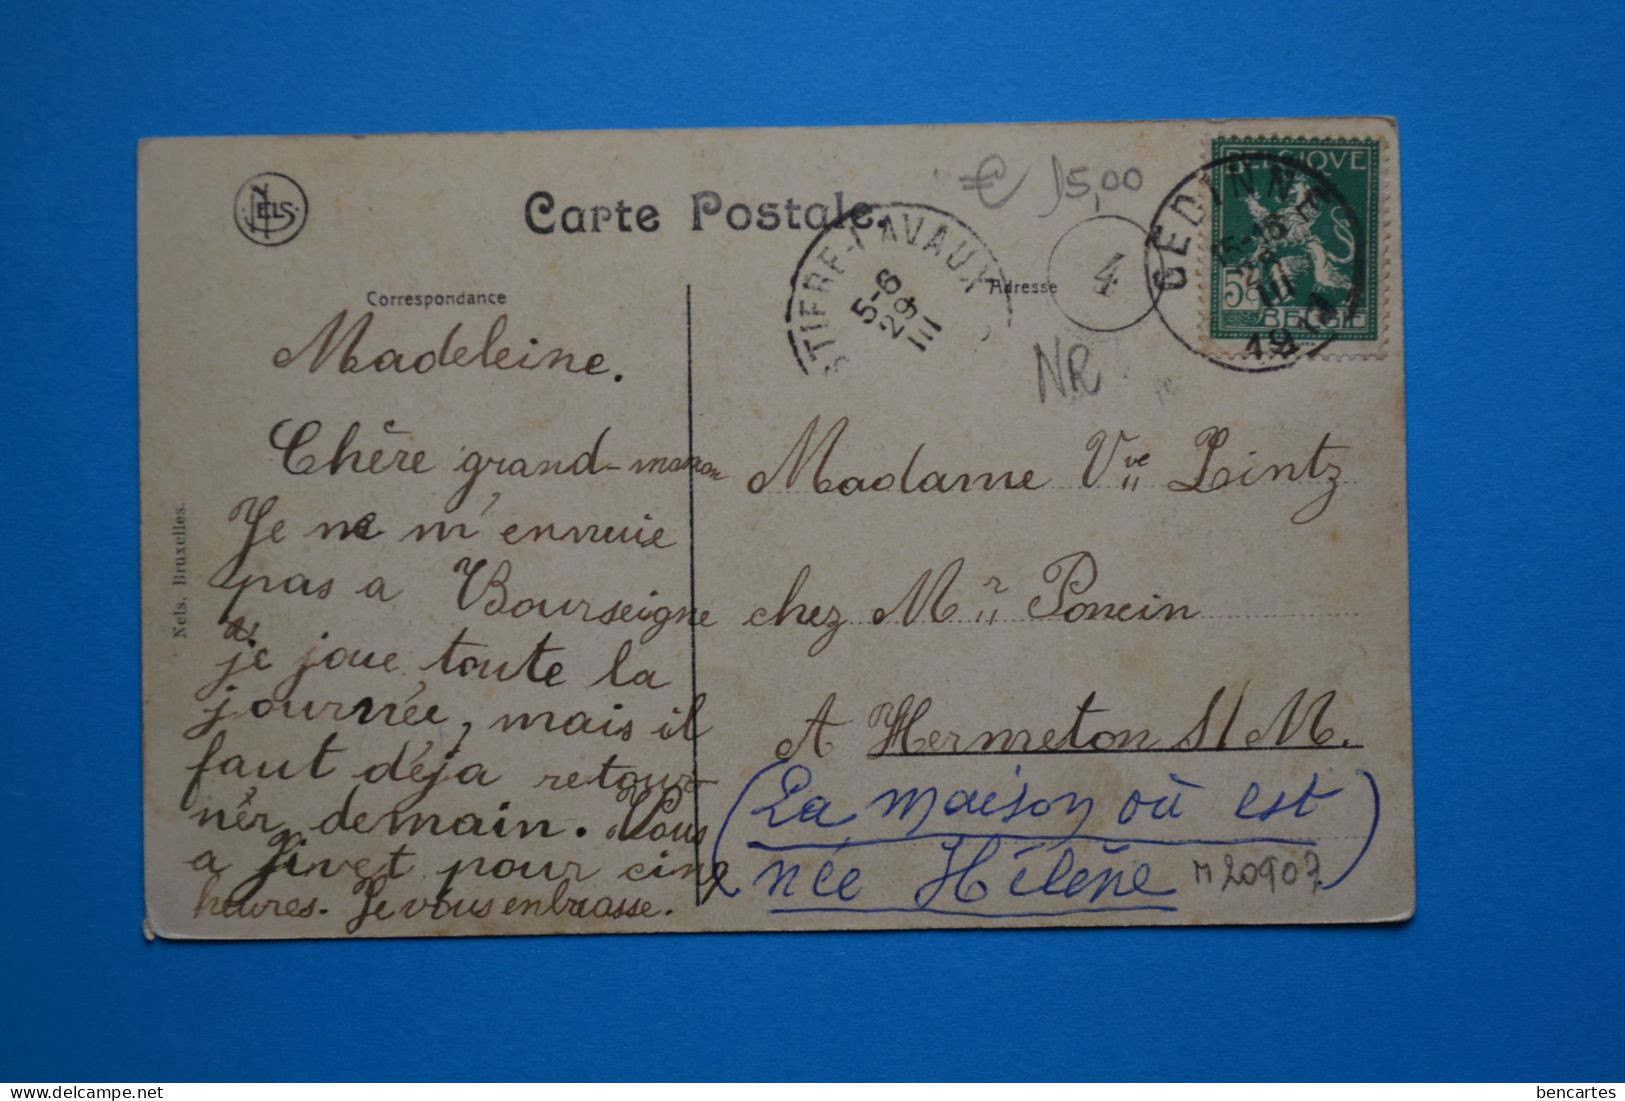 NELS
Carte Postale.
€ 15,00
BELGIQVE
5c
BELGIË
GEDINNE
15-16
28
III
191
HASTIÈRE-LAVAUX
5-6
29
III
4
NR
Correspondance
Adresse
Nels, Bruxelles.
Madeleine.
Chère grand-maman
Je ne m'ennuie
pas a Bourseigne
je joue toute la
journée, mais il
faut déja retour-
nér demain. Vous
a Givet pour cinq
heures. Je vous enbrasse.
Madame Vve Lintz
chez Mr Poncin
A Hermeton S/M.
(La maison où est
née Hélène)
M20907
bencartes